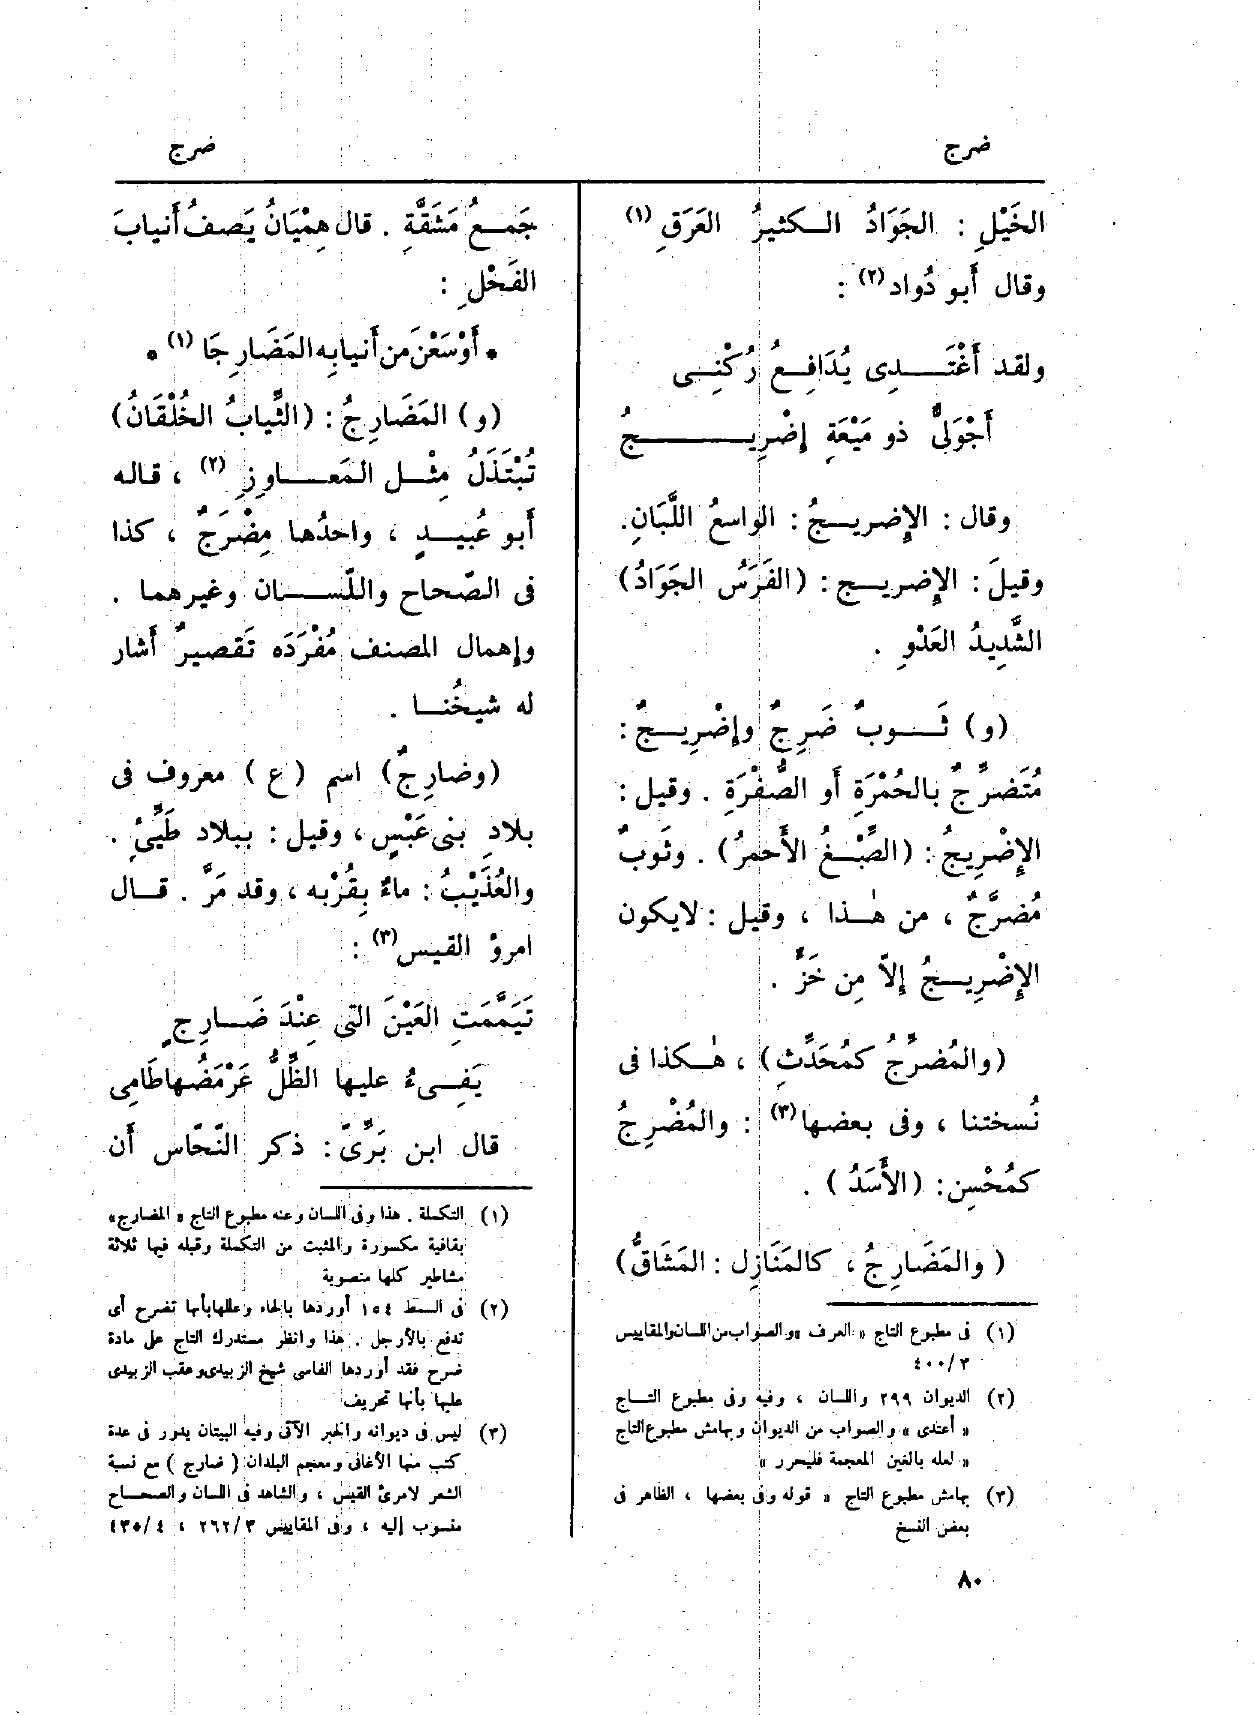 ضرج
ضرج
الخَيْلِ : الجَوَادُ الكثيرُ العَرَقِ (١)
وقال أَبو دُواد (٢) :
ولقد أَغْتَدِى يُدَافِعُ رُكْنِى
أَجْوَلىٌّ ذو مَيْعَةٍ إِضْرِيجُ
وقال : الإِضريجُ : الواسعُ اللَّبَانِ.
وقيلَ : الإِضريج : (الفَرَسُ الجَوَادُ)
الشَّدِيدُ العَدْوِ .
(و) ثَوبٌ ضَرِجٌ وإِضْرِيجٌ :
مُتَضَرِّجٌ بالحُمْرَةِ أَو الصُّفْرَةِ . وقيل :
الإِضْرِيجُ : (الصِّبْغُ الأَحمرُ) . وثَوبٌ
مُضَرَّجٌ ، من هٰذا ، وقيل : لايكون
الإِضْرِيجُ إِلاّ مِن خَزٍّ .
(والمُضرِّجُ كمُحَدِّثٍ) ، هٰكذا فى
نُسختنا ، وفى بعضها (٣) : والمُضْرِجُ
كمُحْسِن : (الأَسَدُ) .
( والمَضَارِجُ ، كالمَنَازِل : المَشَاقُّ)
(١) فى مطبوع التاج « العرف » والصواب من اللسان والمقاييس
٣/ ٤٠٠
(٢) الديوان ٢٩٩ واللسان ، وفيه وفى مطبوع التاج
« أعتدى » والصواب من الديوان وبهامش مطبوع التاج
« لعله بالغين المعجمة فليحرر »
(٣) بهامش مطبوع التاج « قوله وفى بعضها ، الظاهر فى
بعض النسخ
جَمعُ مَشَقَّةٍ . قال هِمْيَانُ يَصفُ أَنيابَ
الفَحْلِ :
* أَوْسَعْنَ من أَنيابِه المَضَارِجَا (١) *
(و) المَضَارِجُ : (الثِّيابُ الخُلْقَانُ)
تُبْتَذَلُ مِثْل المَعَاوِزِ (٢) ، قاله
أَبو عُبيدٍ ، واحدُها مِضْرَجٌ ، كذا
فى الصّحاح واللّسان وغيرهما .
وإِهمال المصنف مُفْرَدَه تَقصيرٌ أَشار
له شيخُنا .
(وضارِجٌ) اسم (ع) معروف فى
بلادِ بنى عَبْسٍ ، وقيل : ببلاد طَيِّئٍ .
والعُذَيْبُ : ماءٌ بِقُرْبه ، وقد مَرَّ . قال
امرؤ القيس (٣) :
تَيَمَّمَتِ العَيْنَ التى عِنْدَ ضَارِجٍ
يَفِىءُ عليها الظِّلُّ عَرْمَضُها طَامِى
قال ابن بَرِّىّ : ذكر النّحّاس أَن
(١) التكملة . هذا وفى اللسان وعنه مطبوع التاج « المضارج»
بقافية مكسورة والمثبت من التكملة وقبله فيها ثلاثة
مشاطير كلها منصوبة
(٢) فى السمط ١٥٤ أوردها بالحاء وعللها بأنها تضرح أى
تدفع بالأرجل . هذا وانظر مستدرك التاج على مادة
ضرح فقد أوردها الفاسى شيخ الزبيدى وعقب الزبيدى
عليها بأنها تحريف
(٣) ليس فى ديوانه والخبر الآتى وفيه البيتان يدور فى عدة
كتب منها الأغانى ومعجم البلدان ( ضارج ) مع نسبة
الشعر لامرئ القيس ، والشاهد فى اللسان والصحاح
منسوب إليه ، وفى المقاييس ٢٦٢/٣ ، ٤٣٥/٤
٨٠